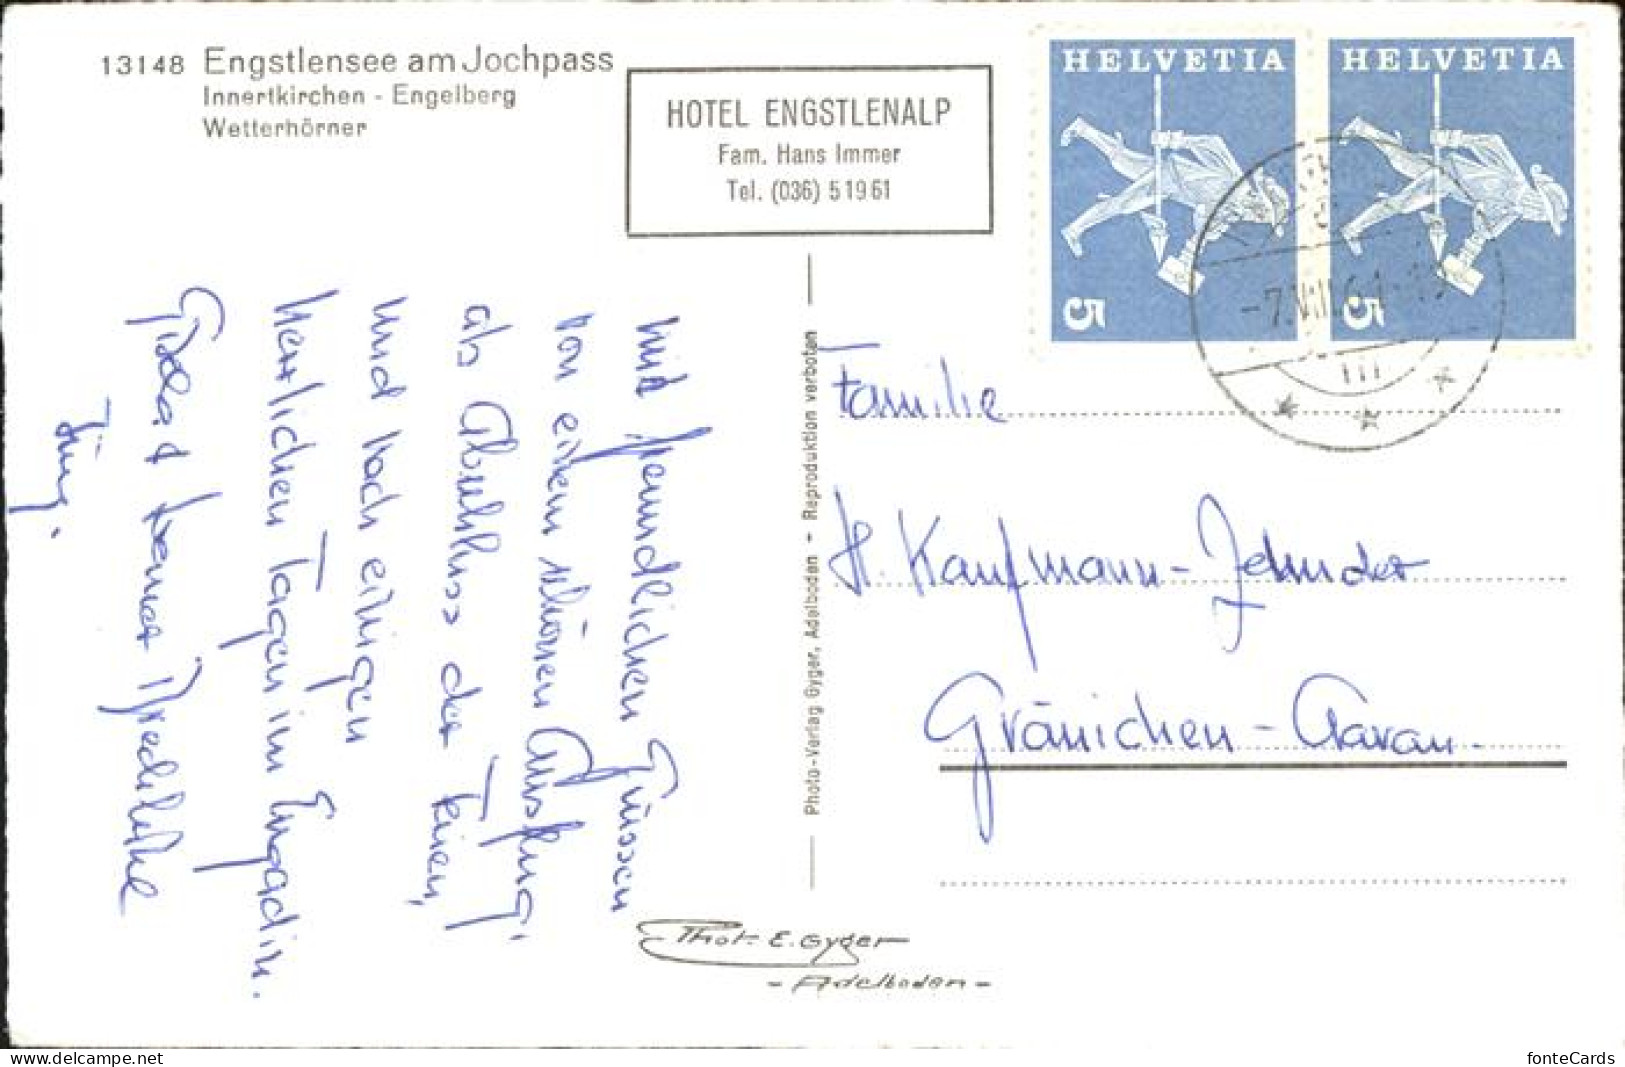 13148 Engstlensee am Jochpass
Innertkirchen - Engelberg
Wetterhörner
HOTEL ENGSTLENALP
Fam. Hans Immer
Tel. (036) 5 19 61
HELVETIA
5
HELVETIA
5
-7.VIII.
Mit freundlichen Grüssen
von einem schönen Ausflug,
als Abschluss der Ferien,
und nach einigen
herrlichen Tagen im Engadin.
Familie
H. Kaufmann-Zehnder
Gränichen-Aarau.
Photo-Verlag Gyger, Adelboden - Reproduktion verboten
Phot. E. Gyger
- Adelboden -
fonteCards